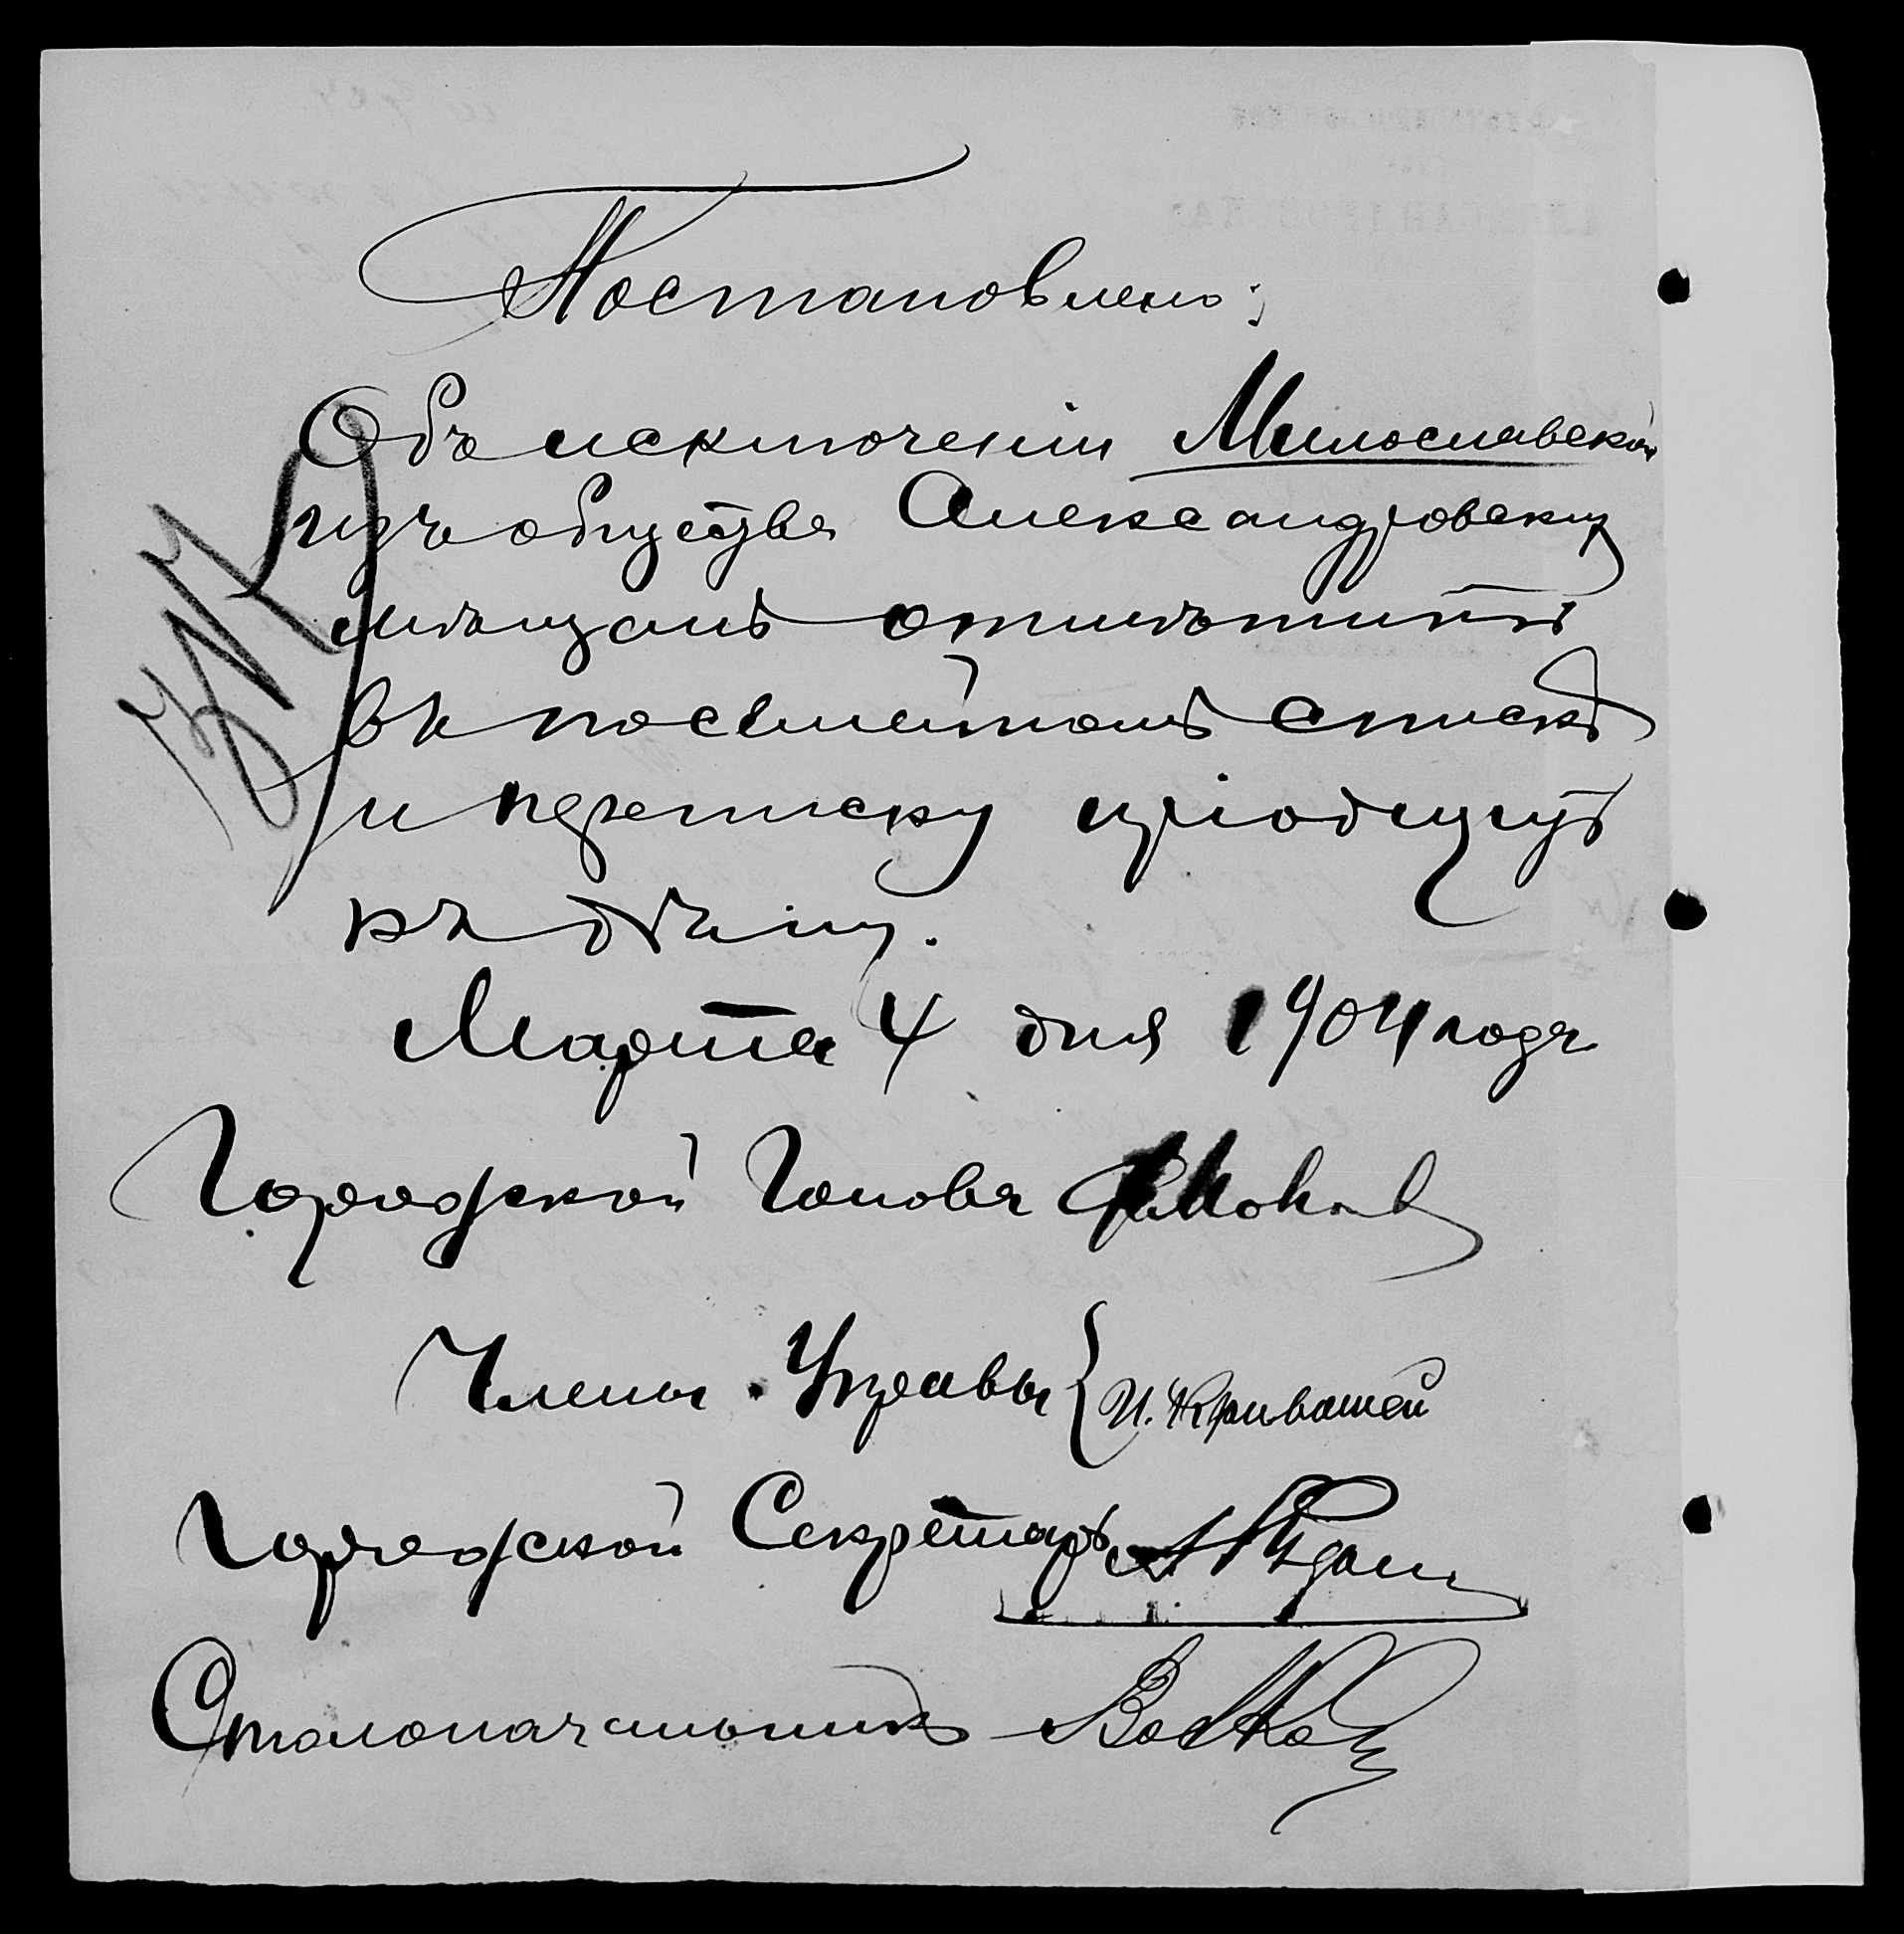 Постановлено:
Объ исключеніи Милославской
изъ общества Александровскихъ
мѣщанъ отмѣтить
въ посемейномъ спискѣ
и переписку пріобщить
къ дѣлу.
Марта 4 дня 1904 года
Городской Голова
Члены Управы { И. Кривошей
Городской Секретарь
Столоначальникъ